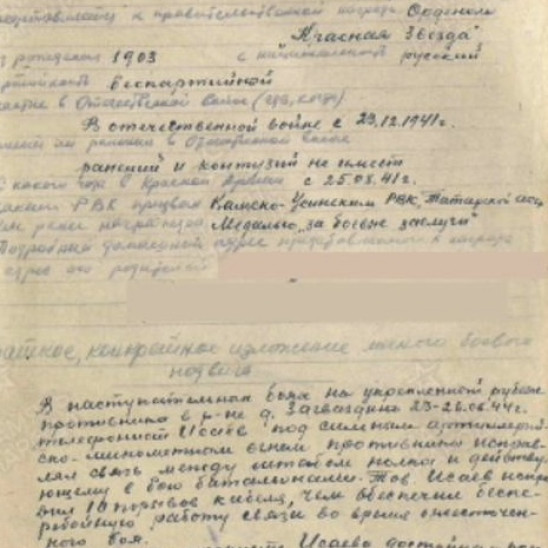 представляется к правительственной награде Орденом
"Красная Звезда"
рождения 1903 национальность русский
партийность беспартийной
участие в Отечественной войне (где, когда)
В отечественной войне с 23.12.1941г.
ли ранения в Отечественной войне
ранений и контузий не имеет
С какого года в Красной Армии с 25.08.41г.
Каким РВК призван Камско-Усинским РВК, Татарской АССР
Чем ранее награжден Медалью "за боевые заслуги"
Подробный домашний адрес представляемого к награде
адрес его родителей
краткое, конкретное изложение личного боевого
подвига
В наступательном бою на укрепленной рубеж
противника в р-не д. 23-26.06.44г.
телефонист Исаев под сильным артиллерий-
ско-минометном огнем противника исправ-
лял связь между штабом полка и действу-
ющему в бою батальонами. Тов. Исаев испра-
вил 10 порывов кабеля, чем обеспечил беспе-
ребойную работу связи во время ожесточен-
ного боя.
Исаева